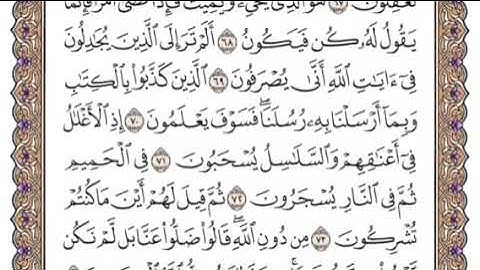 تَعْقِلُونَ ٦٧ هُوَ ٱلَّذِى يُحْىِۦ وَيُمِيتُ فَإِذَا قَضَىٰٓ أَمْرًا فَإِنَّمَا
يَقُولُ لَهُۥ كُن فَيَكُونُ ٦٨ أَلَمْ تَرَ إِلَى ٱلَّذِينَ يُجَٰدِلُونَ
فِىٓ ءَايَٰتِ ٱللَّهِ أَنَّىٰ يُصْرَفُونَ ٦٩ ٱلَّذِينَ كَذَّبُوا۟ بِٱلْكِتَٰبِ
وَبِمَآ أَرْسَلْنَا بِهِۦ رُسُلَنَا ۖ فَسَوْفَ يَعْلَمُونَ ٧٠ إِذِ ٱلْأَغْلَٰلُ
فِىٓ أَعْنَٰقِهِمْ وَٱلسَّلَٰسِلُ يُسْحَبُونَ ٧١ فِى ٱلْحَمِيمِ
ثُمَّ فِى ٱلنَّارِ يُسْجَرُونَ ٧٢ ثُمَّ قِيلَ لَهُمْ أَيْنَ مَا كُنتُمْ
تُشْرِكُونَ ٧٣ مِن دُونِ ٱللَّهِ ۖ قَالُوا۟ ضَلُّوا۟ عَنَّا بَل لَّمْ نَكُن